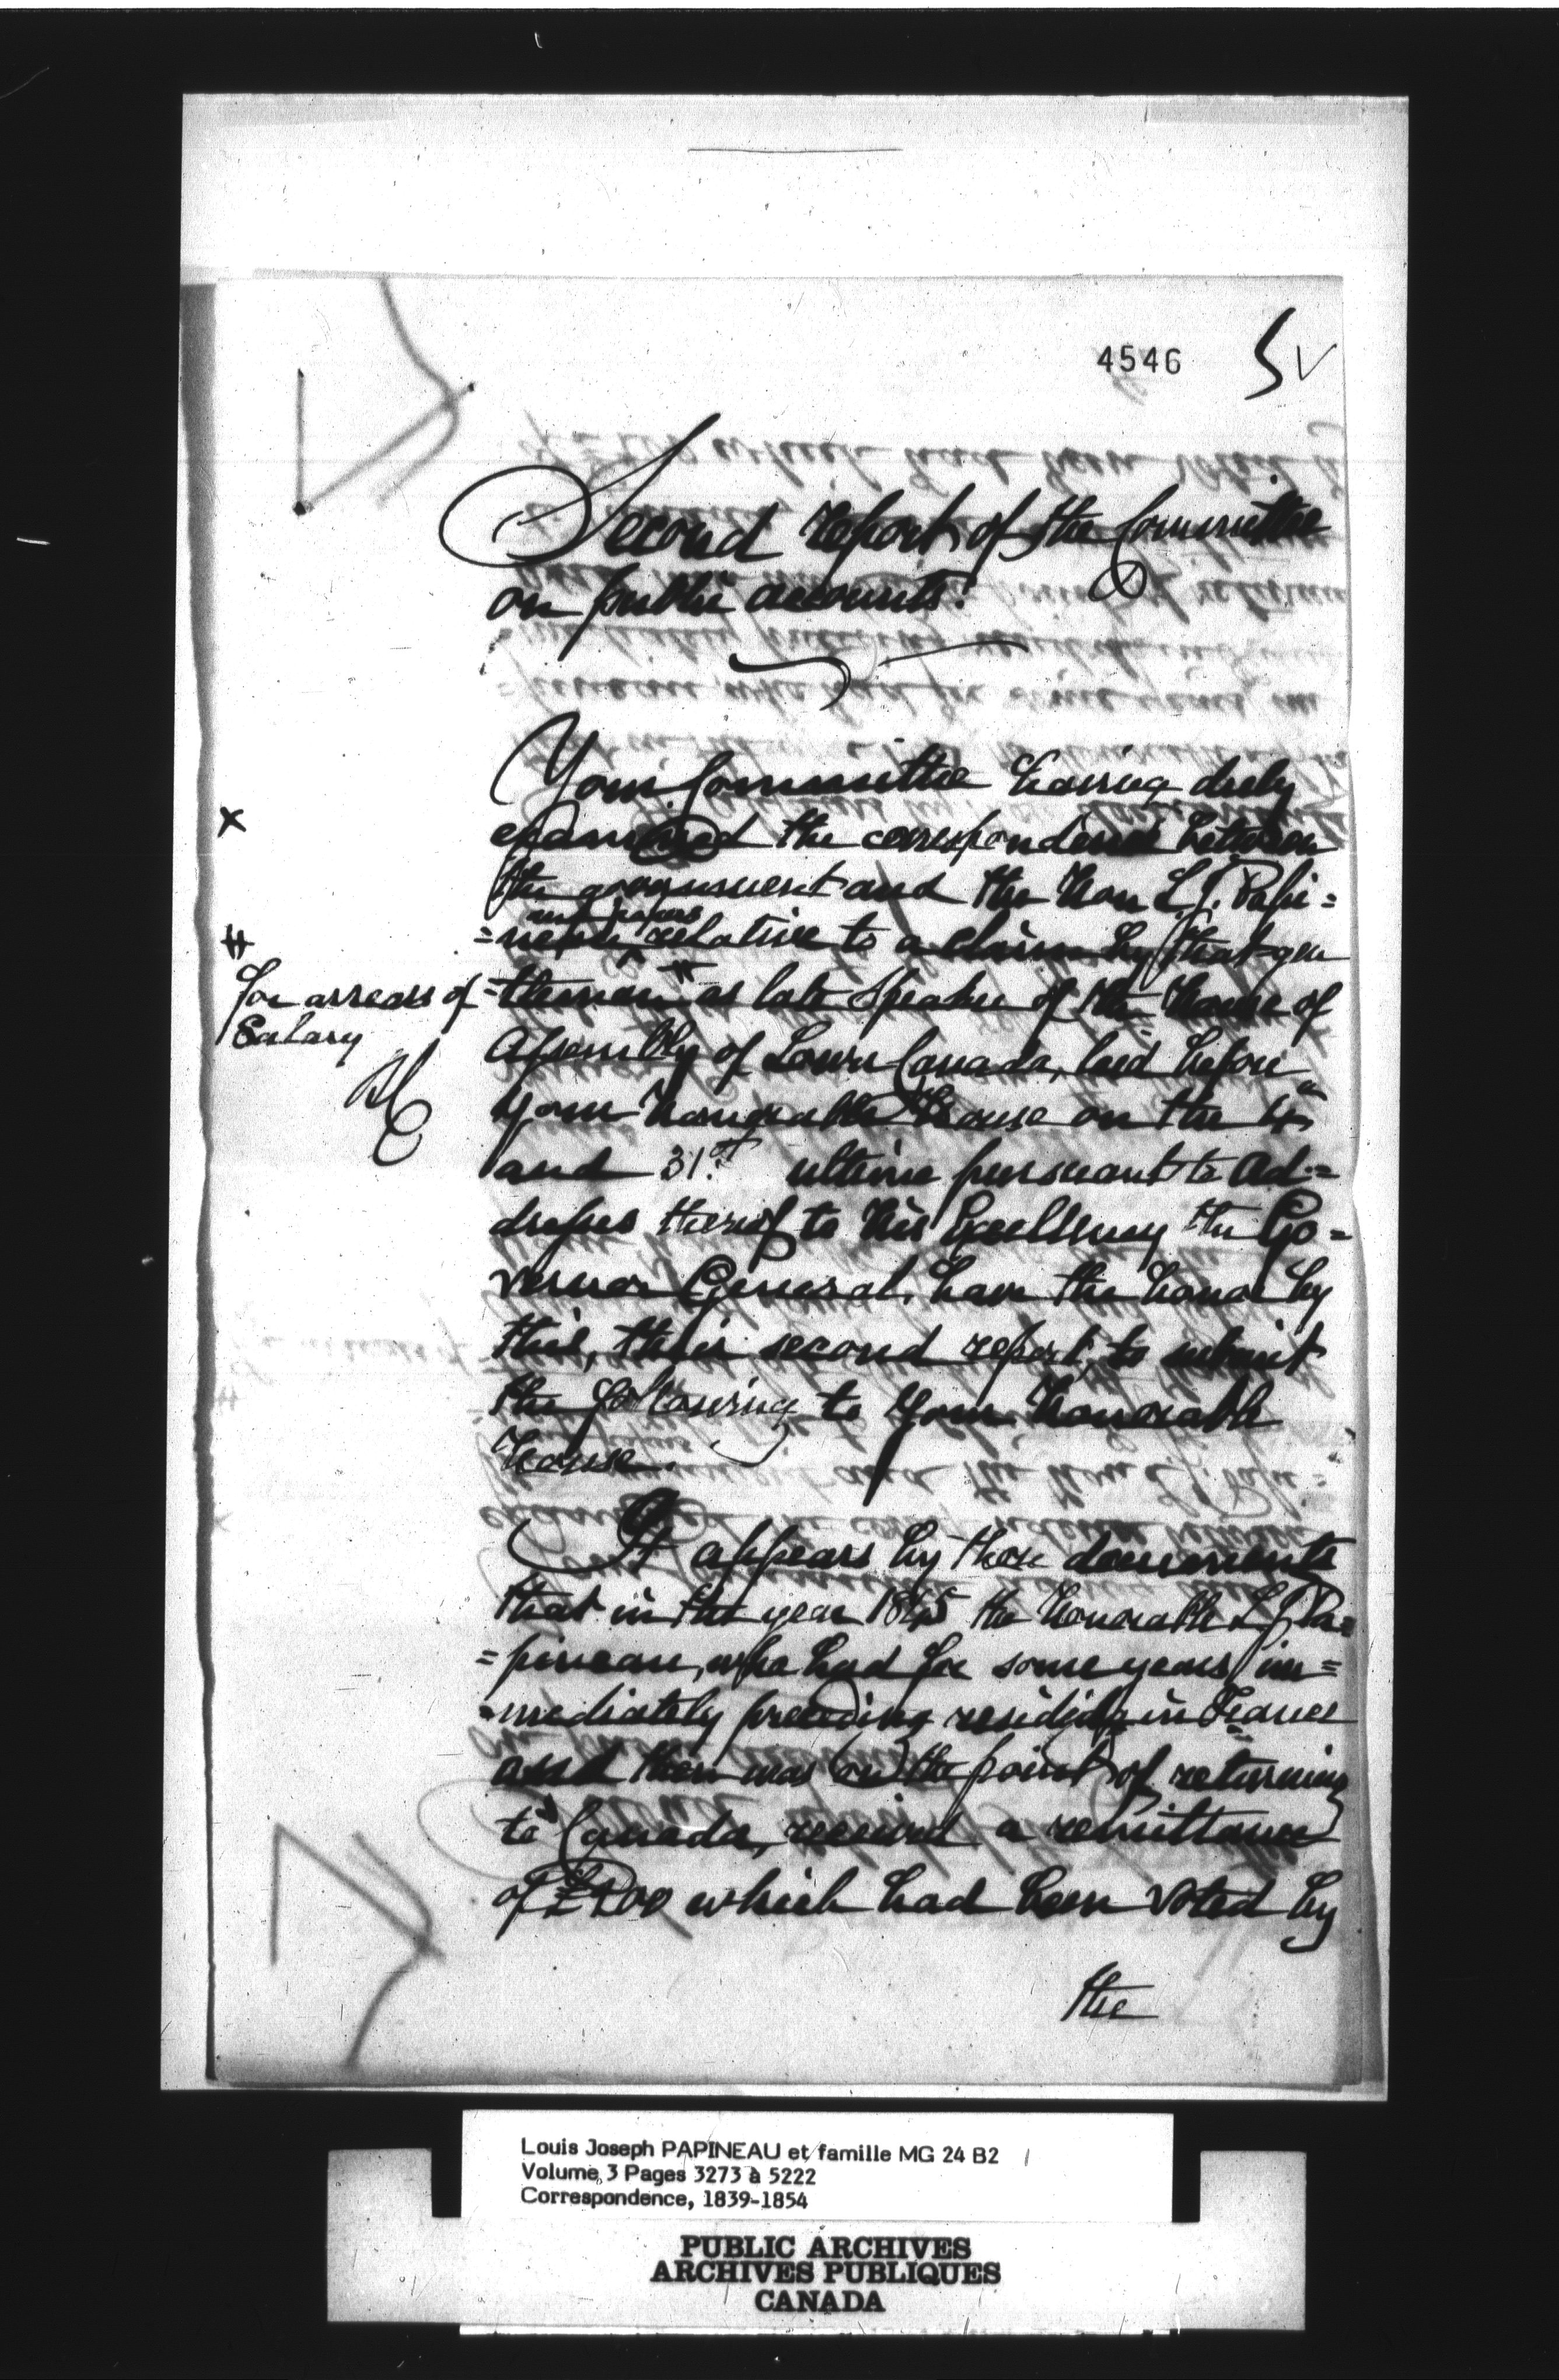 4546
5 V
Second report of the Committee
on public accounts.
Your Committee having duly
x
examined the correspondence between
the government and the Hon L. J. Papi=
and papers
=neau, relative to a claim by that gen
#
for arrears of
Salary
=tleman # as late Speaker of the House of
Assembly of Lower Canada, laid before
your honorable House on the
and 31st ultimo pursuant to Ad=
dresses thereof to His Excellency the Go=
vernor General, have the honor by
this, their second report, to submit
the following to your honorable
House.
It appears by these documents
that in the year 1845 the honorable L J Pa=
=pineau, who had for some years im=
=mediately preceding resided in France
and then was on the point of returning
to Canada, received a remittance
of £ which had been voted by
the
Louis Joseph PAPINEAU et famille MG 24 B2
Volume 3 Pages 3273 à 5222
Correspondence, 1839-1854
PUBLIC ARCHIVES
ARCHIVES PUBLIQUES
CANADA